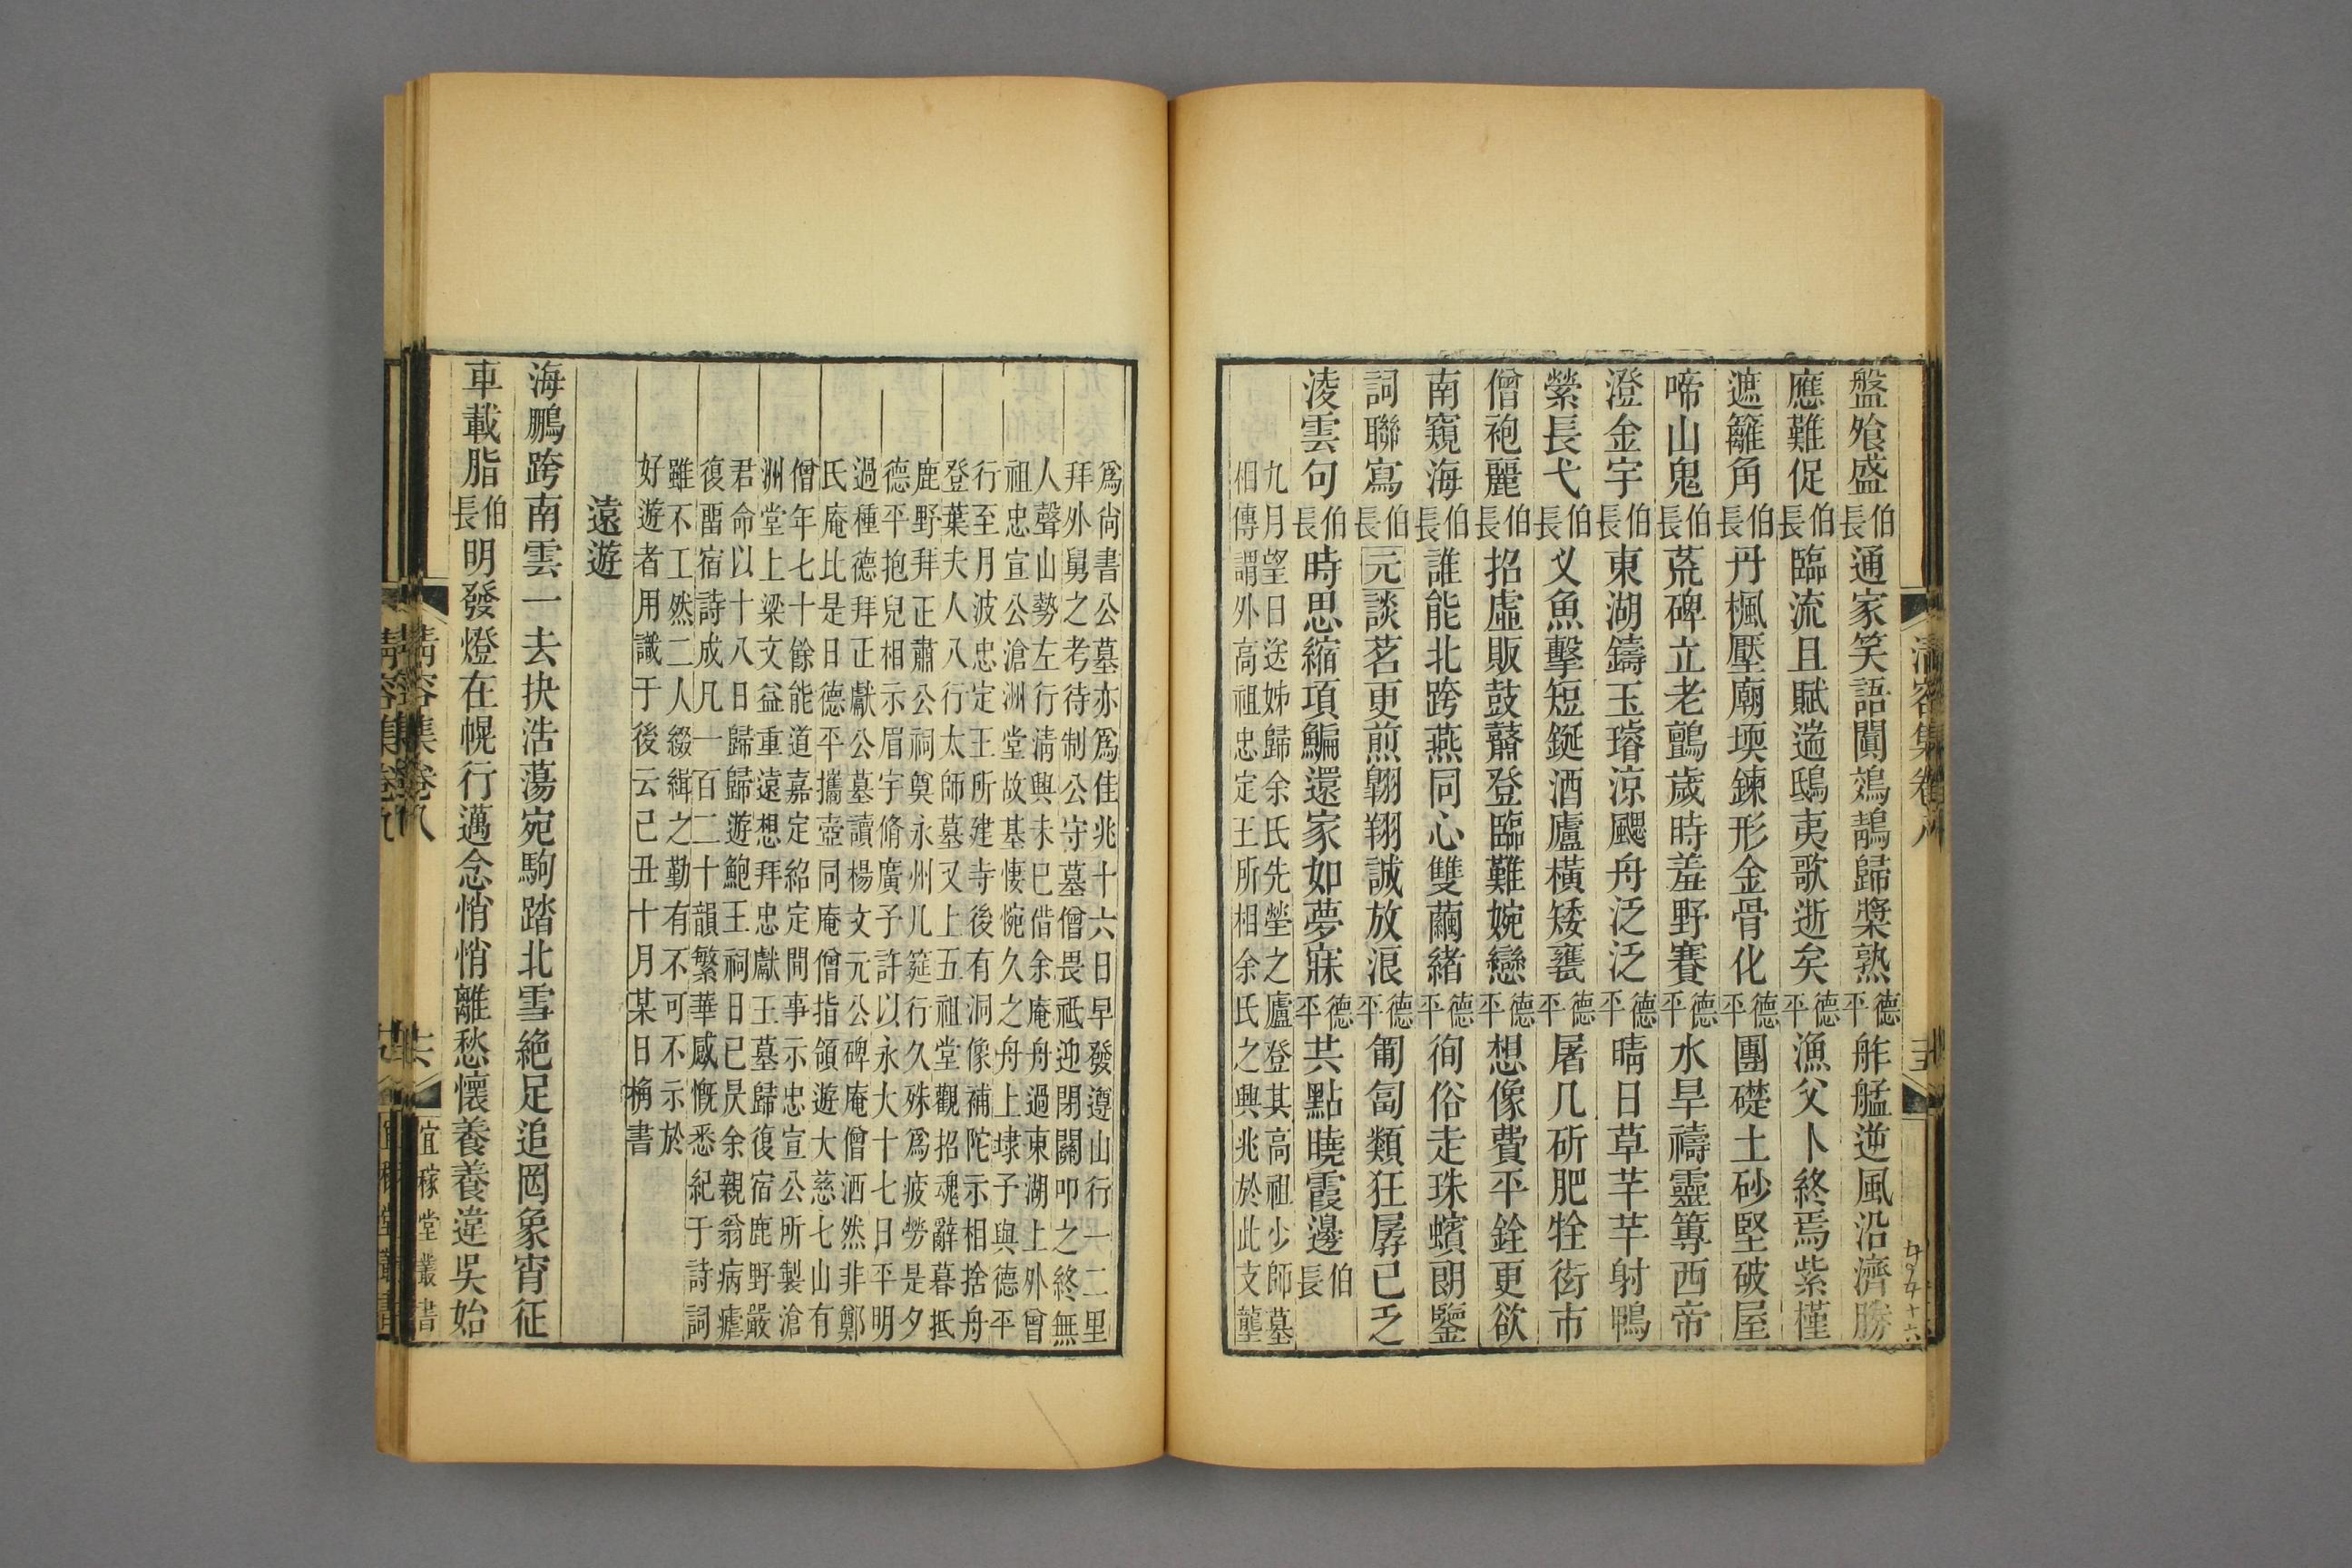 盤飱盛伯長通家笑語闐鵁鶄歸槳熟德平舴艋逆風沿濟勝
應難促伯長臨流且賦遄鴟夷歌逝矣德平漁父卜終焉紫槿
遮籬角伯長丹楓壓廟堧鍊形金骨化德平團礎土砂堅破屋
啼山鬼伯長荒碑立老氈歲時羞野賽德平水旱禱靈篿西帝
澄金宇伯長東湖鑄玉璿涼颸舟泛泛德平晴日草芊芊射鴨
縈長弋伯長乂魚擊短鋋酒廬橫矮甕德平屠几斫肥牷街市
僧袍麗伯長招虛販鼓鼘登臨難婉戀德平想像費平銓更欲
南窺海伯長誰能北跨燕同心雙繭緒德平徇俗走珠蠙朗鑒
詞聯寫伯長元談茗更煎翺翔誠放浪德平匍匐類狂孱已乏
淩雲句伯長時思縮項鯿還家如夢寐德平共點曉霞邊伯長
九月望日送姊歸余氏先塋之廬登其高祖少師墓
相傳謂外高祖忠定王所相余氏之興兆於此支壟
爲尚書公墓亦爲佳兆十六日早發遵山行一二里
拜外舅之考待制公守墓僧畏祗迎閉關叩之終無
人聲山勢左行淸興未已借余庵舟過東湖上外曾
祖忠宣公滄洲堂故基悽惋久之舟上埭子與德平
行至月波忠定王所建寺後有洞像補陀示相捨舟
登葉夫人八行太師墓又上五祖堂觀招魂辭暮抵
鹿野拜正肅公祠奠永州几筵行久殊爲疲勞是夕
德平抱兒相示眉宇脩廣子許以永大十七日平明
過種德拜正獻公墓讀楊文元公碑庵僧洒然非鄭
氏庵比是日德平攜壺同庵僧指領遊大慈七山有
僧年七十餘能道嘉定紹定間事示忠宣公所製滄
洲堂上梁文益重遠想拜忠獻王墓歸復宿鹿野嚴
君命以十八日歸歸遊鮑王祠日已昃余親翁病瘧
復畱宿詩成凡一百二十韻繁華感慨悉紀于詩詞
雖不工然二人綴緝之勤有不可不示於
好遊者用識于後云己丑十月某日桷書
遠遊
海鵬跨南雲一去抉浩蕩宛駒踏北雪絶足追罔象宵征
車載脂伯長明發燈在幌行邁念悄悄離愁懷養養違吳始
淸容集卷八
六
宜稼堂叢書